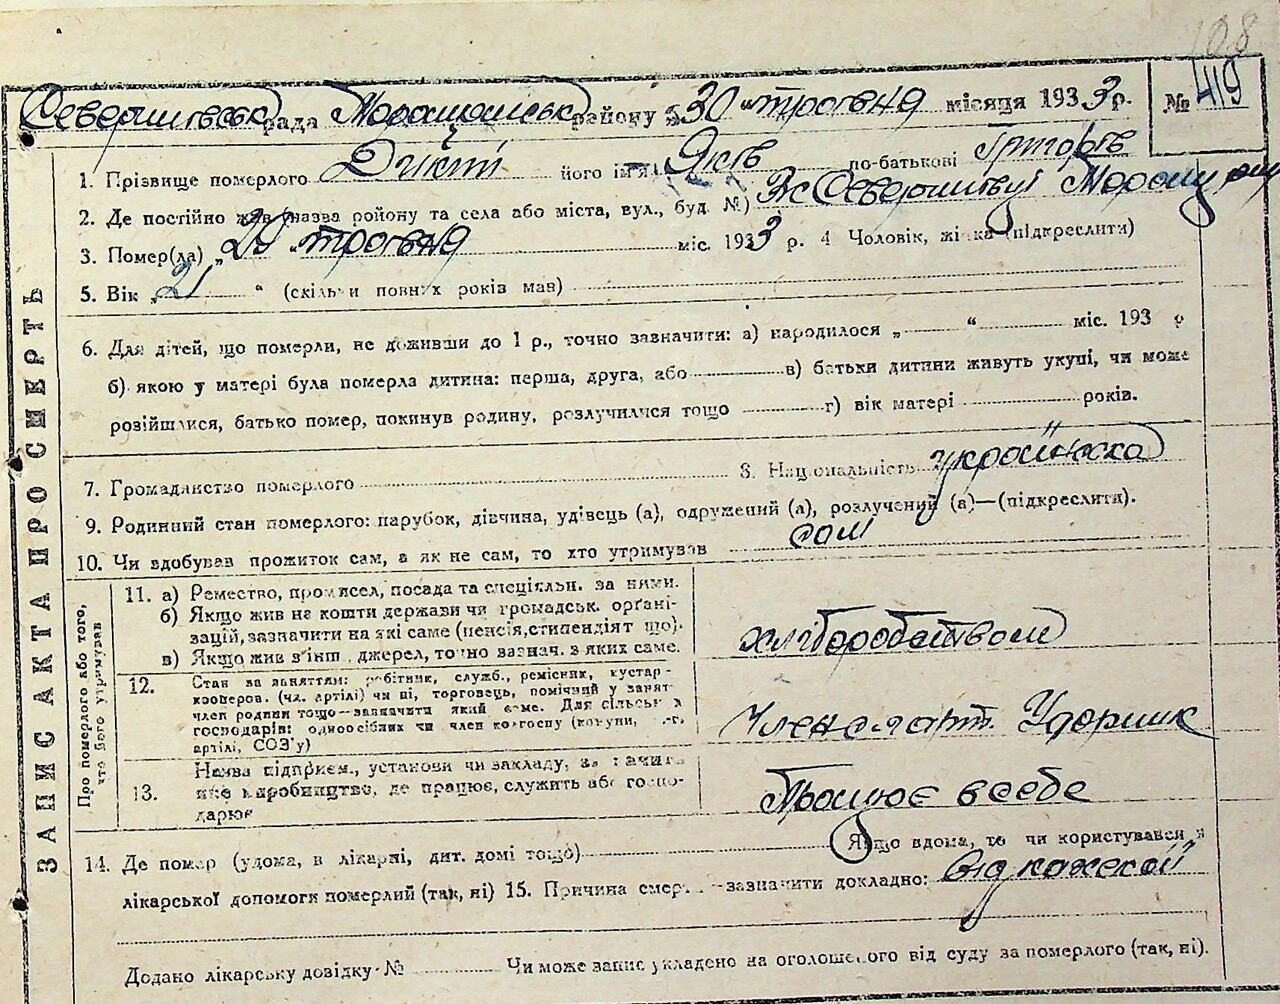 108
рада районну „30" травня місяця 1933 р. № 419
1. Прізвище померлого його ім'я Яків по-батькові Григорів
2. Де постійно жив (назва району та села або міста, вул., буд. №)
3. Помер(ла) „ " травня міс. 1933 р. 4 Чоловік, жінка (підкреслити)
5. Вік „21 " (скільки повних років мав)
6. Для дітей, що померли, не доживши до 1 р., точно зазначити: а) народилося „ " міс. 193 р
б) якою у матері була померла дитина: перша, друга, або в) батьки дитини живуть укупі, чи може
розійшлися, батько помер, покинув родину, розлучилися тощо г) вік матері років.
7. Громадянство померлого 8. Національність українська
9. Родинний стан померлого: парубок, дівчина, удівець (а), одружений (а), розлучений (а)—(підкреслити).
10. Чи здобував прожиток сам, а як не сам, то хто утримував сам
ЗАПИС АКТА ПРО СМЕРТЬ
Про померлого або того,
хто його утримував
11. а) Ремество, промисел, посада та спеціяльн. за ними.
б) Якщо жив на кошти держави чи громадськ. орґані-
зацій, зазначити на які саме (пенсія, стипендіят що).
в) Якщо жив з інш. джерел, точно зазнач. з яких саме.
хліборобством
12. Стан за заняттям: робітник, служб., ремісник, кустар-
кооперов. (чл. артілі) чи ні, торговець, помічний у занят.
член родини тощо—зазначити який саме. Для сільськ.
господарів: одноосібник чи член колгоспу (комуни,
артілі, СОЗ'у)
Член с.г. арт. Ударник
13. Назва підприєм., установи чи закладу, зазначити
яке виробництво, де працює, служить або госпо-
дарює
Працює в себе
14. Де помер (удома, в лікарні, дит. домі тощо) Якщо вдома, то чи користувався
лікарської допомоги померлий (так, ні) 15. Причина смерти—зазначити докладно: від
Додано лікарську довідку № Чи може запис укладено на оголошеного від суду за померлого (так, ні).